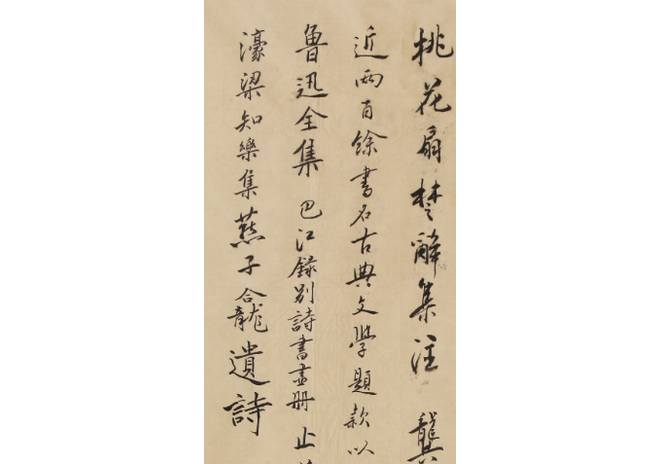 桃花扇楚辭集注 龔
近兩百餘書名古典文學題款以
魯迅全集 巴江錄別詩書畫冊 止
濠梁知樂集燕子龕遺詩